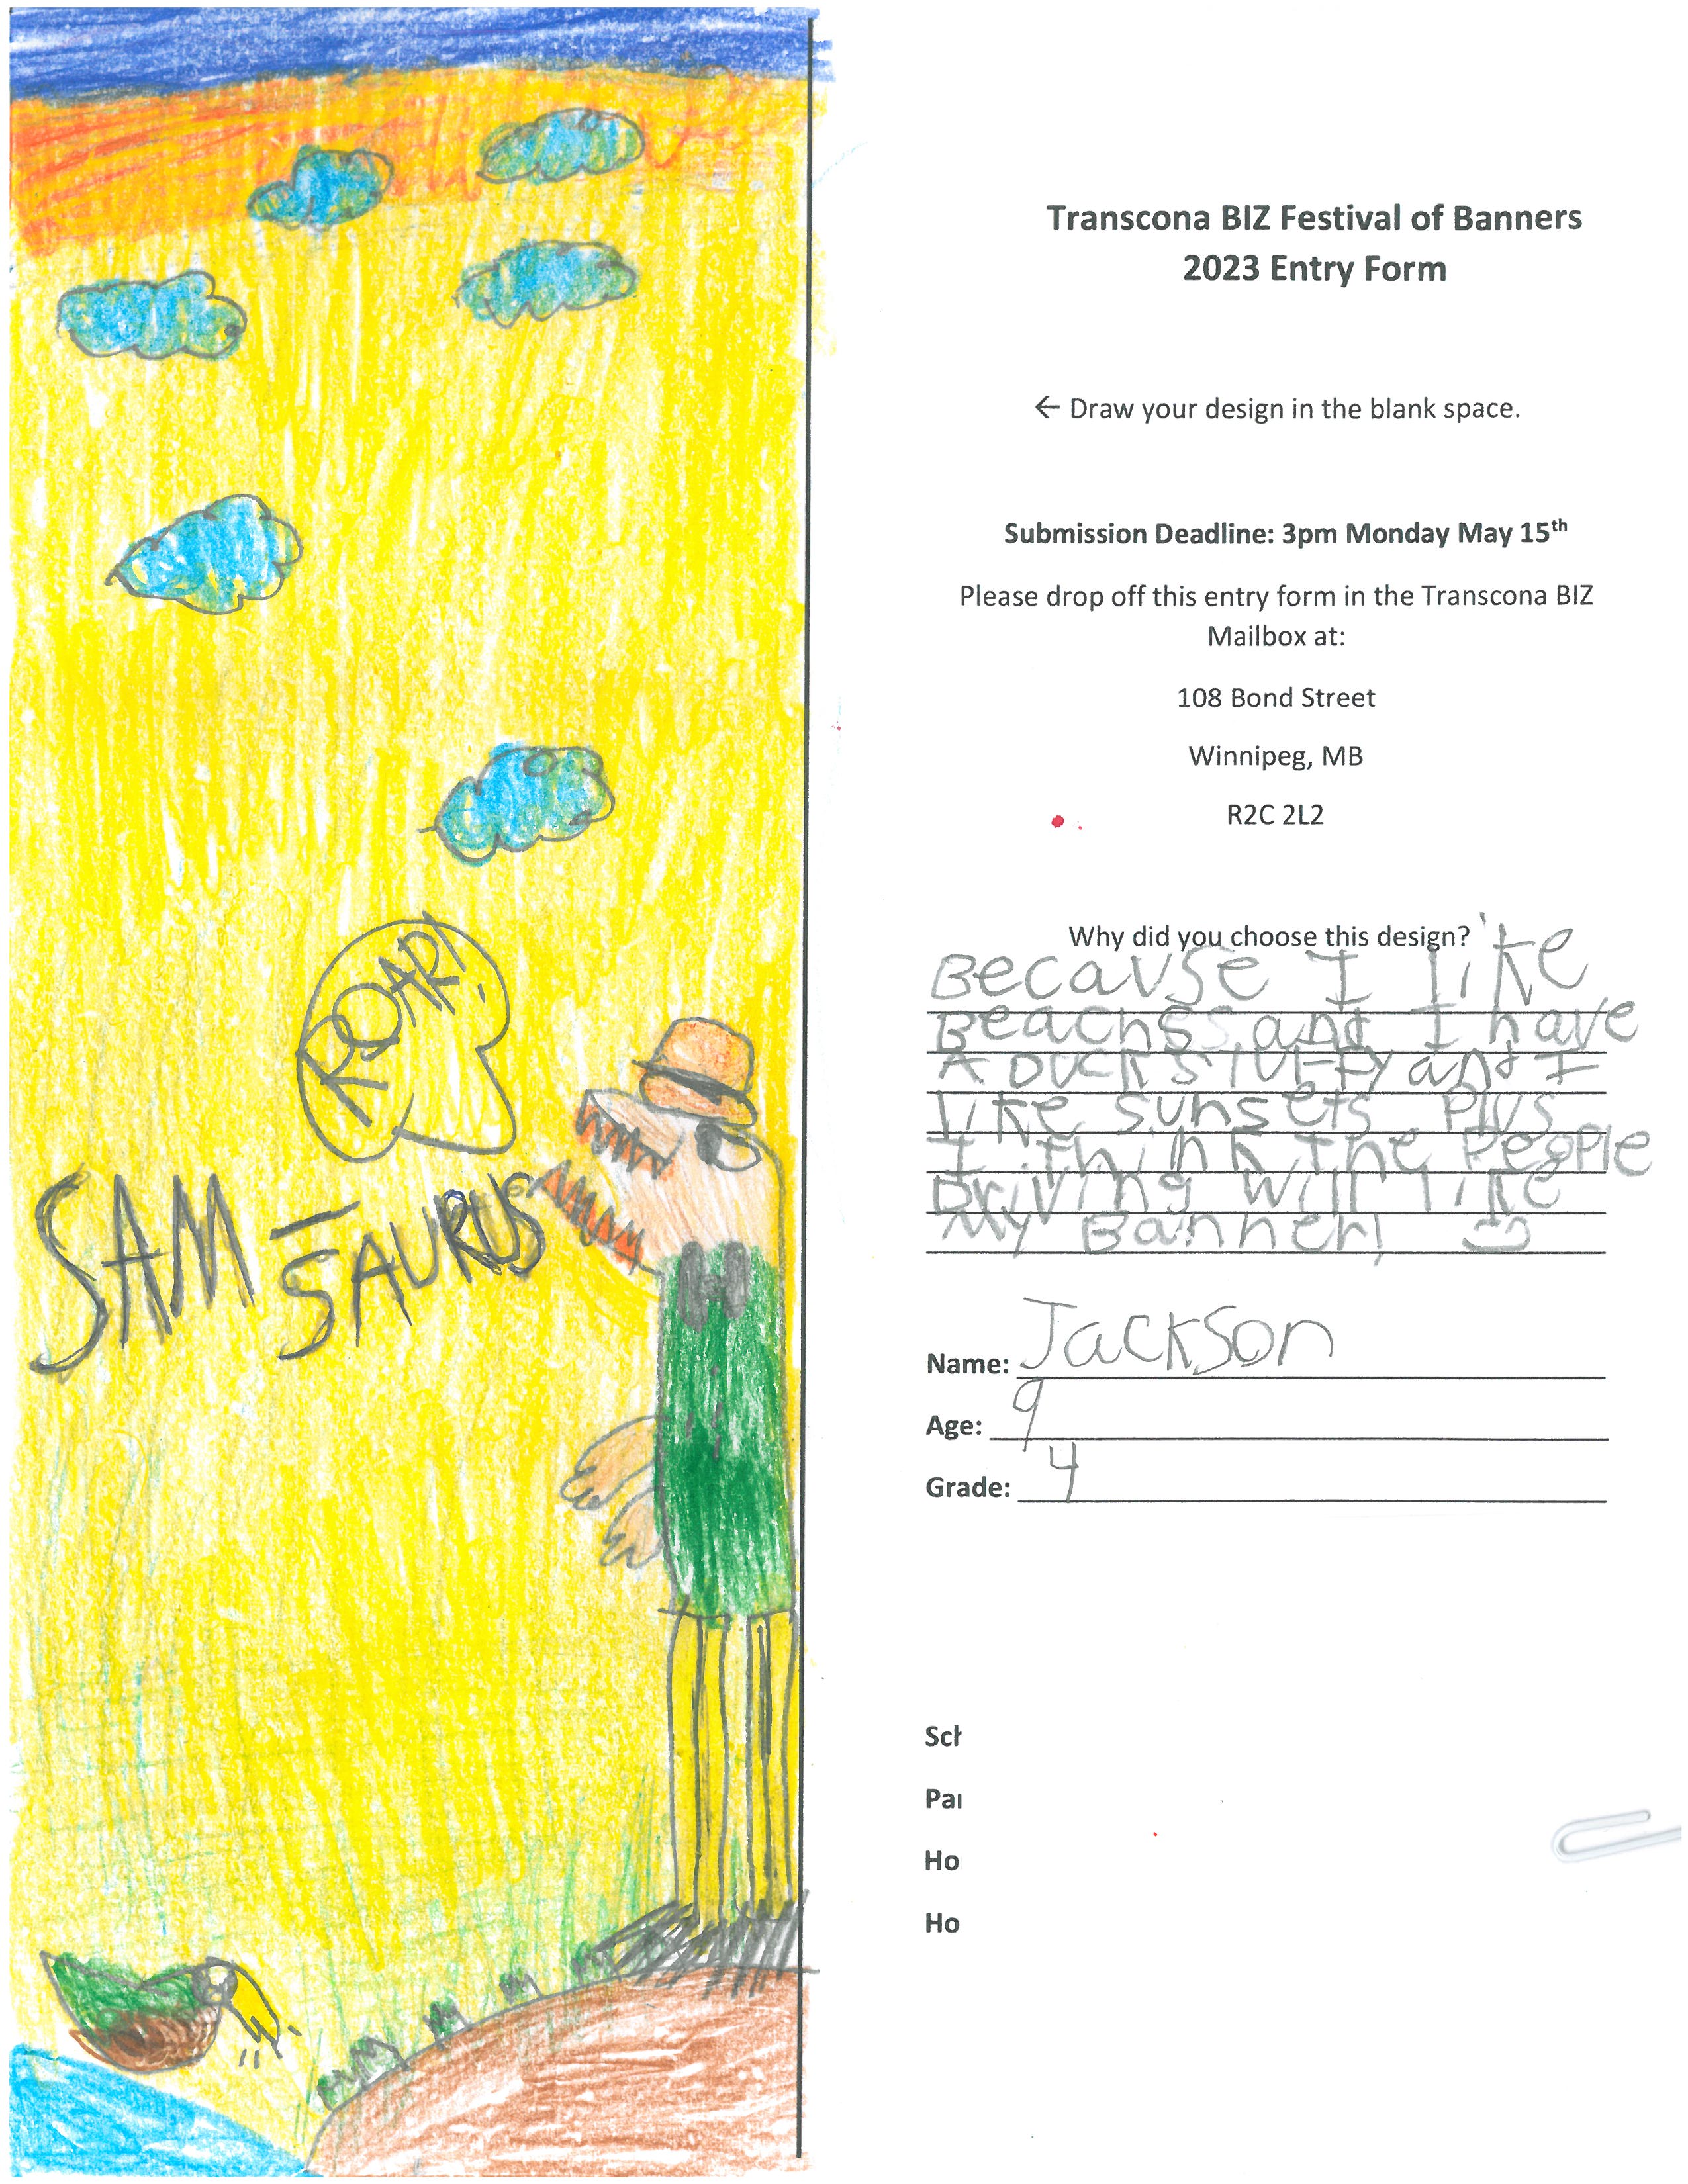 ROAR!
SAM-
SAURUS
Transcona BIZ Festival of Banners
2023 Entry Form
← Draw your design in the blank space.
Submission Deadline: 3pm Monday May 15th
Please drop off this entry form in the Transcona BIZ
Mailbox at:
108 Bond Street
Winnipeg, MB
R2C 2L2
Why did you choose this design?
Because I like
Beachs, and I have
A Duck STUFFy and I
like sunsets Plus
I think the People
Driving will like
My Banner!
Name: Jackson
Age: 9
Grade: 4
Sch
Par
Ho
Ho